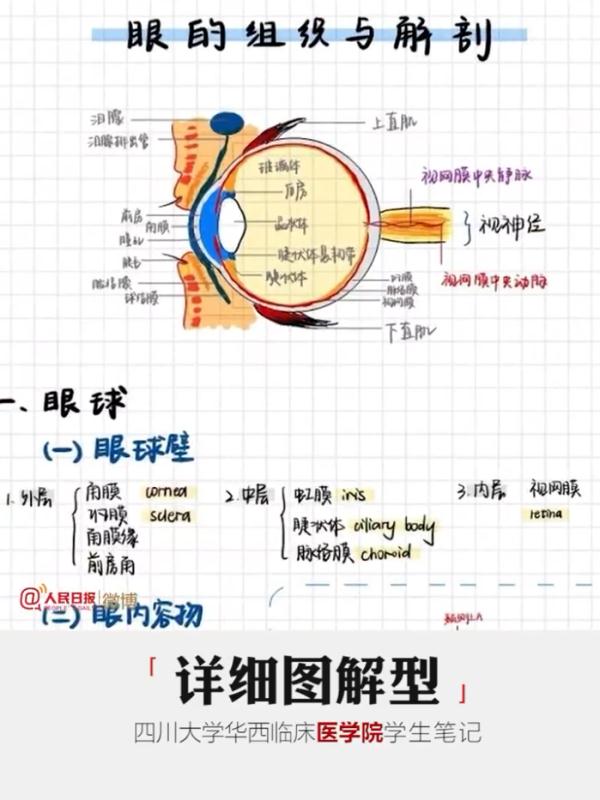 眼的组织与解剖
泪腺
泪腺排出管
上直肌
玻璃体
后房
视网膜中央静脉
前房
角膜
晶状体
视神经
瞳孔
睫状体悬韧带
睫状体
视网膜中央动脉
睑结膜
球结膜
巩膜
脉络膜
视网膜
下直肌
一、眼球
(一) 眼球壁
1. 外层
角膜 cornea
巩膜 sclera
角膜缘
前房角
2. 中层
虹膜 iris
睫状体 ciliary body
脉络膜 choroid
3. 内层 视网膜
retina
@人民日报 微博
PEOPLE'S DAILY
(二) 眼内容物
「详细图解型」
四川大学华西临床医学院学生笔记